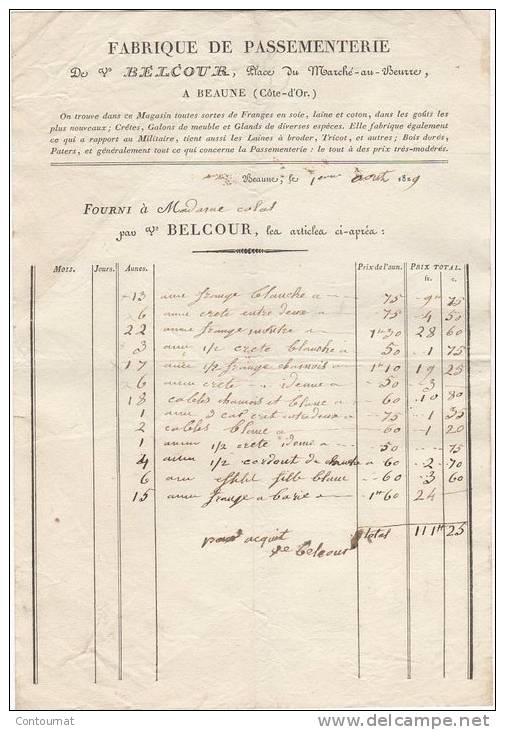 FABRIQUE DE PASSEMENTERIE
De Ve BELCOUR, Place du Marché-au-Beurre,
A BEAUNE (Côte-d'Or.)
On trouve dans ce Magasin toutes sortes de Franges en soie, laine et coton, dans les goûts les
plus nouveaux; Crêtes, Galons de meuble et Glands de diverses espèces. Elle fabrique également
ce qui a rapport au Militaire, tient aussi les Laines à broder, Tricot, et autres; Bois dorés,
Paters, et généralement tout ce qui concerne la Passementerie: le tout à des prix très-modérés.
Beaune, le 1er août 1829
FOURNI à Madame colas
par Ve BELCOUR, les articles ci-après:
Mois. Jours. Aunes. Prix de l'aun. PRIX TOTAL.
fr. c.
13 aune frange blanche a 75 9 75
6 aune crete entre deux a 75 4 50
22 aune frange a 1 30 28 60
3 aune 1/2 crete blanche a 50 1 75
17 aune 1/2 frange chamois a 1 10 19 25
6 aune crete idem a 50 3
18 cables chamois et blanc a 60 10 80
1 aune a 75 1 35
2 cables blanc a 60 1 20
1 aune 1/2 crete idem a 50 75
4 aune 1/2 cordont de a 60 2 70
6 aune fille blanc 60 3 60
15 aune frange a 1 60 24
pour acquit total 111 25
ve Belcour
Contournat
www.delcampe.net